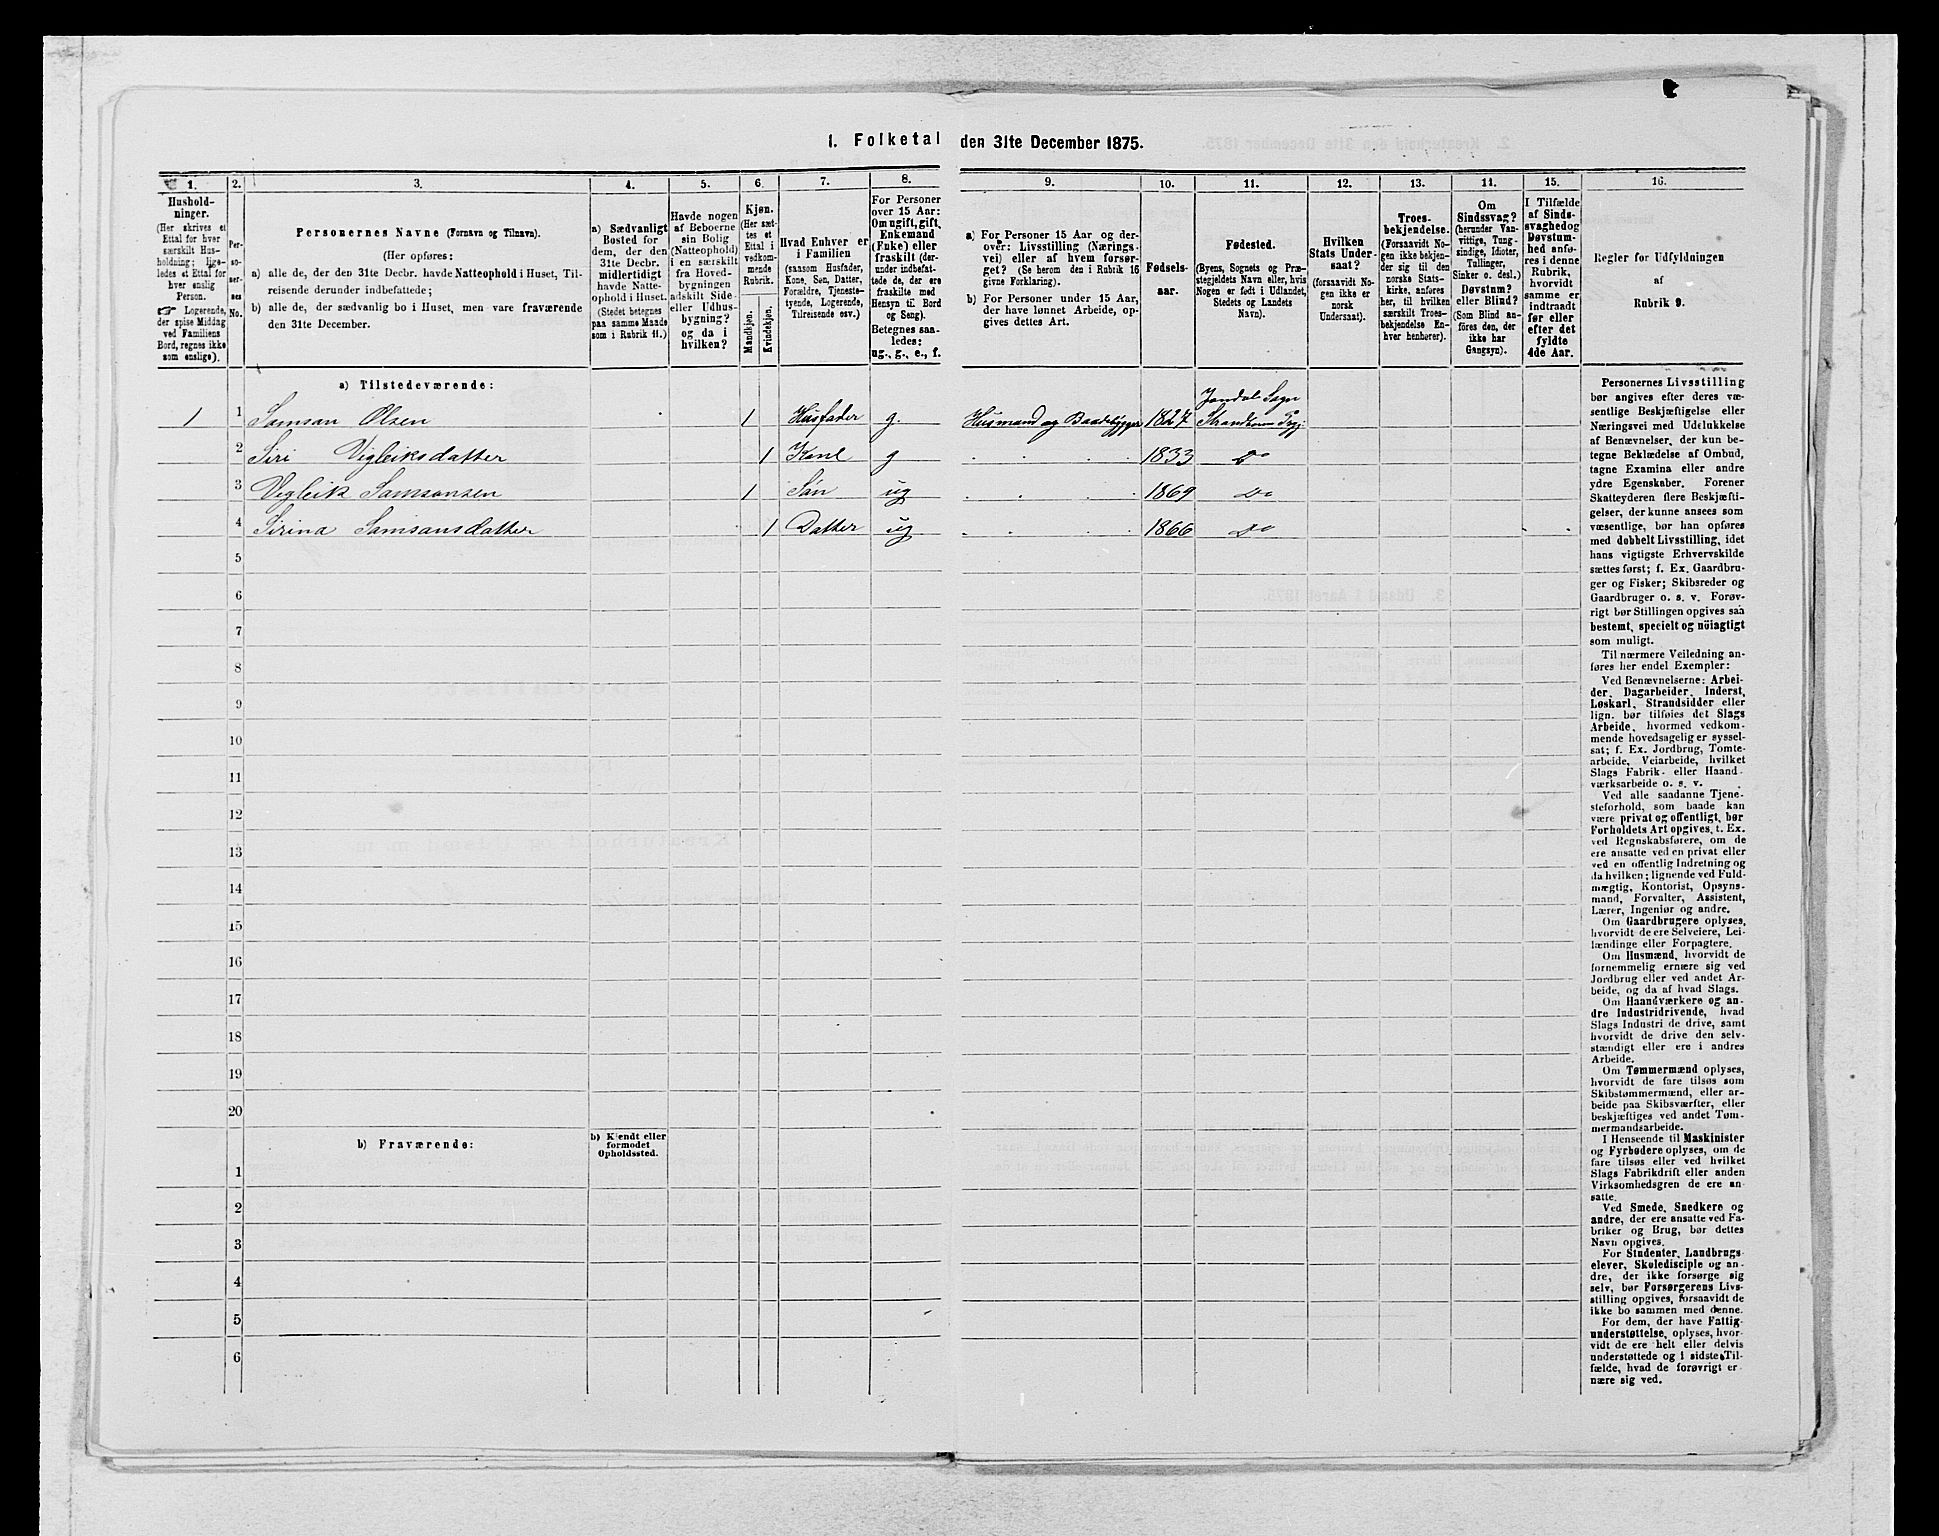 1. Folketal den 31te December 1875.
1.
2.
3.
4.
5.
6.
7.
8.
9.
10.
11.
12.
13.
14.
15.
16.
Hushold-
ninger.
(Her skrives et
Ettal for hver
særskilt Hus-
holdning; lige-
ledes et Ettal for
hver enslig
Person.
☞ Logerende,
der spise Middag
ved Familiens
Bord, regnes ikke
som enslige).
Per-
so-
ner-
nes
No.
Personernes Navne (Fornavn og Tilnavn).
(Her opføres:
a) alle de, der den 31te Decbr. havde Natteophold i Huset, Til-
reisende derunder indbefattede;
b) alle de, der sædvanlig bo i Huset, men vare fraværende
den 31te December.
a) Sædvanligt
Bosted for
dem, der den
31te Decbr.
midlertidigt
havde Natte-
ophold i Huset.
(Stedet betegnes
paa samme Maade
som i Rubrik 11.)
Havde nogen
af Beboerne
sin Bolig
(Natteophold)
i en særskilt
fra Hoved-
bygningen
adskilt Side-
eller Udhus-
bygning?
og da i
hvilken?
Kjøn.
(Her sæt-
tes et
Ettal i
vedkom-
mende
Rubrik.
Mandkjøn.
Kvindekjøn.
Hvad Enhver er
i Familien
(saasom Husfader,
Kone, Søn, Datter,
Forældre, Tjeneste-
tyende, Logerende,
Tilreisende osv.)
For Personer
over 15 Aar:
Om ugift, gift,
Enkemand
(Enke) eller
fraskilt (der-
under indbefat-
tede de, der ere
fraskilte med
Hensyn til Bord
og Seng).
Betegnes saa-
ledes:
ug., g., e., f.
a) For Personer 15 Aar og der-
over: Livsstilling (Nærings-
vei) eller af hvem forsør-
get? (Se herom den i Rubrik 16
givne Forklaring).
b) For Personer under 15 Aar,
der have lønnet Arbeide, op-
gives dettes Art.
Fødsels-
aar.
Fødested.
(Byens, Sognets og Præ-
stegjeldets Navn eller, hvis
Nogen er født i Udlandet,
Stedets og Landets
Navn).
Hvilken
Stats Under-
saat?
(forsaavidt No-
gen ikke er
norsk
Undersaat).
Troes-
bekjendelse.
(Forsaavidt No-
gen ikke bekjen-
der sig til den
norske Stats-
kirke, anføres
her, til hvilken
særskilt Troes-
bekjendelse En-
hver henhører).
Om
Sindssvag?
(herunder Van-
vittige, Tung-
sindige, Idioter,
Tullinger,
Sinker o. desl.)
Døvstum?
eller Blind?
(Som Blind an-
føres den, der
ikke har
Gangsyn).
I Tilfælde
af Sinds-
svaghed og
Døvstum-
hed anfø-
res i denne
Rubrik,
hvorvidt
samme er
indtraadt
før eller
efter det
fyldte
4de Aar.
Regler for Udfyldningen
af
Rubrik 9.
a) Tilstedeværende:
1 1 Samson Olsen 1 Husfader g. Husmand og Baadebygger 1827 Jondal Sogn
Strandbarm Pgj:
2 Siri Vigleiksdatter 1 Kone g 1833 Do
3 Vigleik Samsonsen 1 Søn ug 1869 Do
4 Sirina Samsonsdatter 1 Datter ug 1866 Do
5
6
7
8
9
10
11
12
13
14
15
16
17
18
19
20
b) Fraværende:
b) Kjendt eller
formodet
Opholdssted.
1
2
3
4
5
6
Personernes Livsstilling
bør angives efter deres væ-
sentlige Beskjæftigelse eller
Næringsvei med Udelukkelse
af Benævnelser, der kun be-
tegne Beklædelse af Ombud,
tagne Examina eller andre
ydre Egenskaber. Forener
Skatteyderen flere Beskjæfti-
gelser, der kunne ansees som
væsentlige, bør han opføres
med dobbelt Livsstilling, idet
hans vigtigste Erhvervskilde
sættes først; f. Ex. Gaardbru-
ger og Fisker; Skibsreder og
Gaardbruger o. s. v. Forøv-
rigt bør Stillingen opgives saa
bestemt, specielt og nöiagtigt
som muligt.
Til nærmere Veiledning an-
føres her endel Exempler:
Ved Benævnelserne: Arbei-
der, Dagarbeider, Inderst,
Løskarl, Strandsidder eller
lign. bør tilføies det Slags
Arbeide, hvormed vedkom-
mende hovedsagelig er syssel-
sat; f. Ex. Jordbrug, Tomte-
arbeide, Veiarbeide, hvilket
Slags Fabrik- eller Haand-
værksarbeide o. s. v.
Ved alle saadanne Tjene-
steforhold, som baade kan
være privat og offentligt, bør
Forholdets Art opgives, t. Ex.
ved Regnskabsførere, om de
ere ansatte ved en privat eller
ved en offentlig Indretning og
da hvilken; lignende ved Fuld-
mægtig, Kontorist, Opsyns-
mand, Forvalter, Assistent,
Lærer, Ingeniør og andre.
Om Gaardbrugere oplyses,
hvorvidt de ere Selveiere, Lei-
lændinge eller Forpagtere.
Om Husmænd, hvorvidt de
fornemmelig ernære sig ved
Jordbrug eller ved andet Ar-
beide, og da af hvad Slags.
Om Haandværkere og an-
dre Industridrivende, hvad
Slags Industri de drive, samt
hvorvidt de drive den selv-
stændigt eller ere i andres
Arbeide.
Om Tømmermænd oplyses,
hvorvidt de fare tilsøs som
Skibstømmermænd, eller ar-
beide paa Skibsværfter, eller
beskjæftiges ved andet Tøm-
mermandsarbeide.
I Henseende til Maskinister
og Fyrbødere oplyses, om de
fare tilsøs eller ved hvilket
Slags Fabrikdrift eller anden
Virksomhedsgren de ere an-
satte.
Ved Smede, Snedkere og
andre, der ere ansatte ved Fa-
briker og Brug, bør dettes
Navn opgives.
For Studenter, Landbrugs-
elever, Skoledisciple og an-
dre, der ikke forsørge sig
selv, bør Forsørgerens Livs-
stilling opgives, forsaavidt de
ikke bo sammen med denne.
For dem, der have Fattig-
understøttelse, oplyses, hvor-
vidt de ere helt eller delvis
understøttede og i sidste Til-
fælde, hvad de forøvrigt er-
nære sig ved.